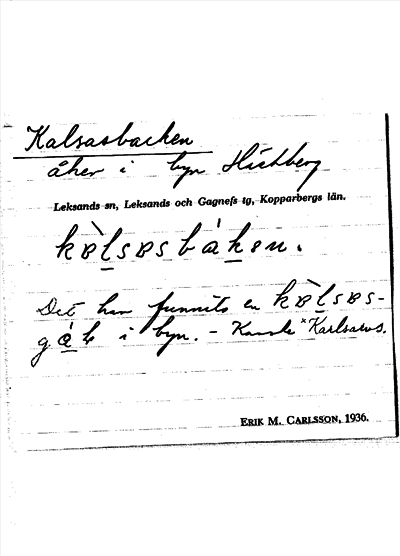 Kalsasbacken
åker i byn Hishberg
Leksands sn, Leksands och Gagnefs tg, Kopparbergs län.
kɐ̀lsɐsbákɐn.
Det har funnits en kɐ̀lsɐs-
i byn. - Kanske *Karlsarvs.
ERIK M. CARLSSON, 1936.